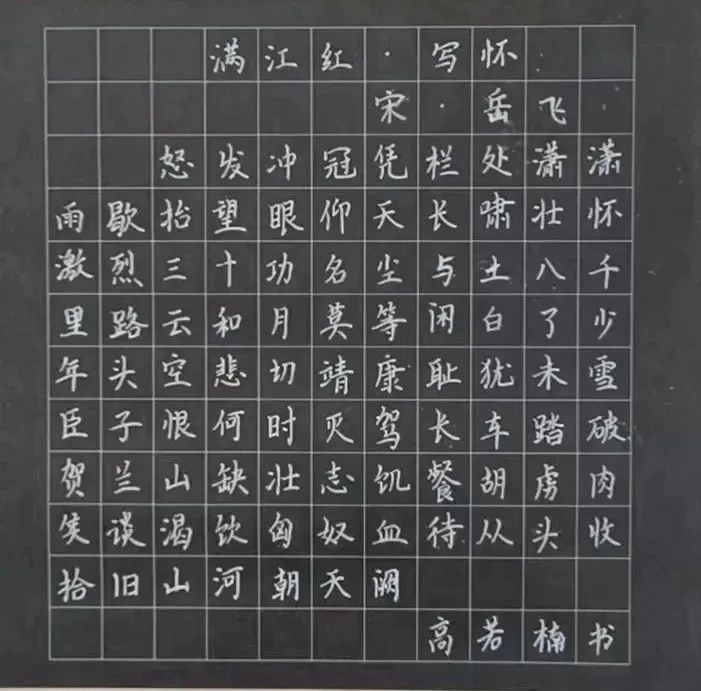 满江红·写怀
宋·岳飞
怒发冲冠凭栏处潇潇
雨歇抬望眼仰天长啸壮怀
激烈三十功名尘与土八千
里路云和月莫等闲白了少
年头空悲切靖康耻犹未雪
臣子恨何时灭驾长车踏破
贺兰山缺壮志饥餐胡虏肉
笑谈渴饮匈奴血待从头收
拾旧山河朝天阙
高若楠书